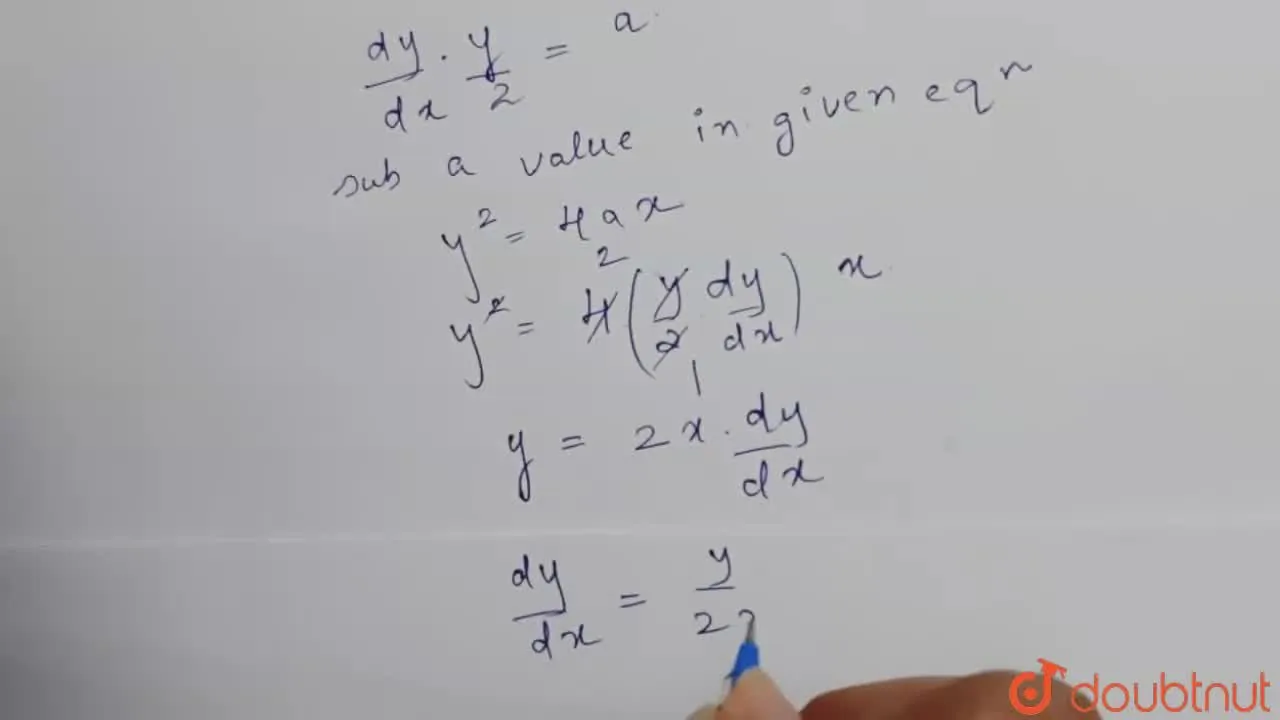 dy/dx . y/2 = a
sub a value in given eqn
y² = 4ax
y² = 4(y/2 dy/dx) x
2
1
y = 2x . dy/dx
dy/dx = y/2
doubtnut